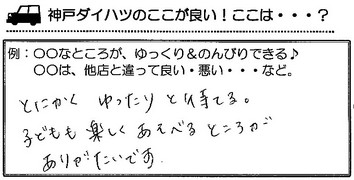 神戸ダイハツのここが良い！ここは・・・？
例：〇〇なところが、ゆっくり＆のんびりできる♪
〇〇は、他店と違って良い・悪い・・・など。
とにかく ゆったり と待てる。
子どもも 楽しく あそべる ところが
ありがたいです